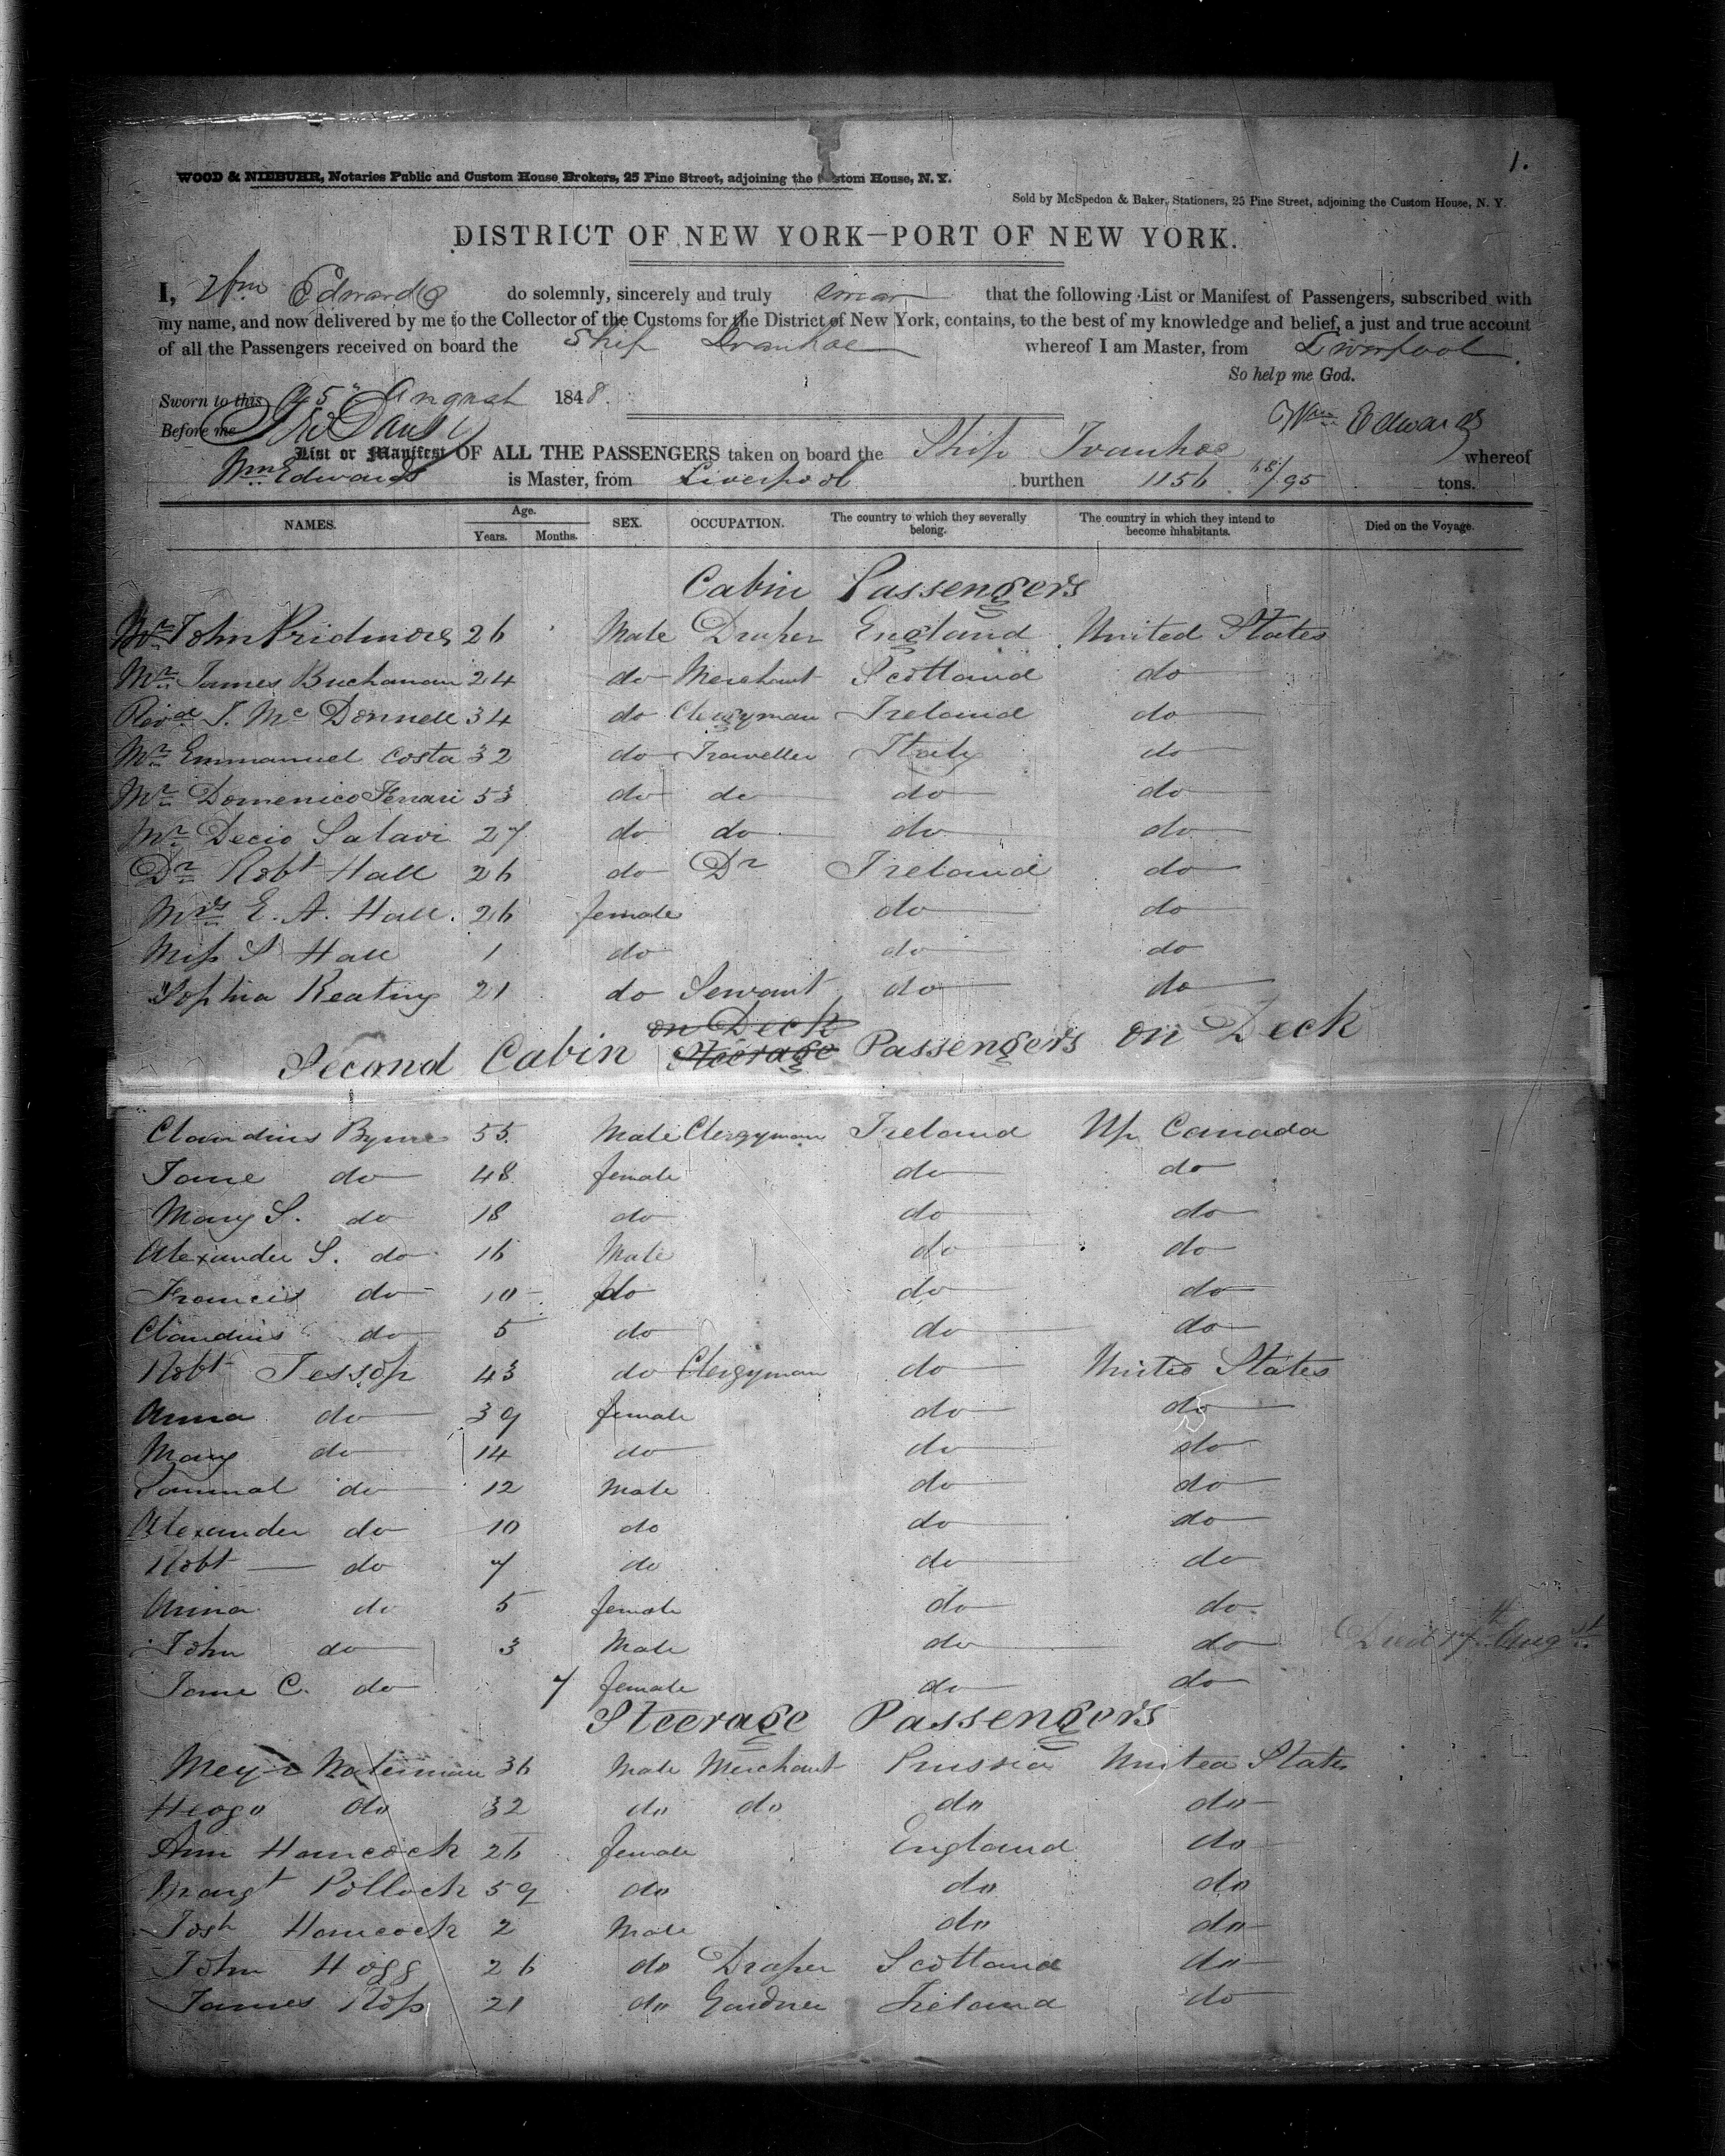 1.
WOOD & NIEBUHR, Notaries Public and Custom House Brokers, 25 Pine Street, adjoining the Custom House, N. Y.
Sold by McSpedon & Baker, Stationers, 25 Pine Street, adjoining the Custom House, N. Y.
DISTRICT OF NEW YORK—PORT OF NEW YORK.
I, Wm Edwards do solemnly, sincerely and truly swear that the following List or Manifest of Passengers, subscribed with
my name, and now delivered by me to the Collector of the Customs for the District of New York, contains, to the best of my knowledge and belief, a just and true account
of all the Passengers received on board the Ship Ivanhoe whereof I am Master, from Liverpool.
So help me God.
Sworn to this 25th August 1848.
Before me Wm Edwards
List or Manifest OF ALL THE PASSENGERS taken on board the Ship Ivanhoe whereof
Wm Edwards is Master, from Liverpool burthen 1156 68/95 tons.
NAMES. Age. Years. Months. SEX. OCCUPATION. The country to which they severally belong. The country in which they intend to become inhabitants. Died on the Voyage.
Cabin Passengers
Mr John Pridmore 26 Male Draper England United States
Mr James Buchanan 24 do Merchant Scotland do
Revd J. Mc Donnell 34 do Clergyman Ireland do
Mr Emmanuel Costa 32 do Traveller Italy do
Mr Domenico Ferrari 53 do do do do
Mr Decio 27 do do do do
Dr Robt Hall 26 do Dr Ireland do
Mrs E. A. Hall. 26 female do do
Miss S Hall 1 do do do
Sophia Keating 21 do Servant do do
on Deck
Second Cabin Steerage Passengers on Deck
Claudius Byrne 55 Male Clergyman Ireland Up Canada
Jane do 48 female do do
Mary S. do 18 do do do
Alexander S. do 16 Male do do
Francis do 10 do do do
Claudius do 5 do do do
Robt Jessop 43 do Clergyman do United States
Anna do 39 female do do
Mary do 14 do do do
Samual do 12 Male do do
Alexander do 10 do do do
Robt do 7 do do do
Anna do 5 female do do
John do 3 Male do do Died 17th Augst
Jane C. do 7 female do do
Steerage Passengers
Meyer 36 Male Merchant Prussia United States
do 32 do do do do
Ann Hancock 26 female England do
Margt Pollock 59 do do do
Josh Hancock 2 Male do do
John Hogg 26 do Draper Scotland do
James Ross 21 do Gardner Ireland do
SAFETY FILM